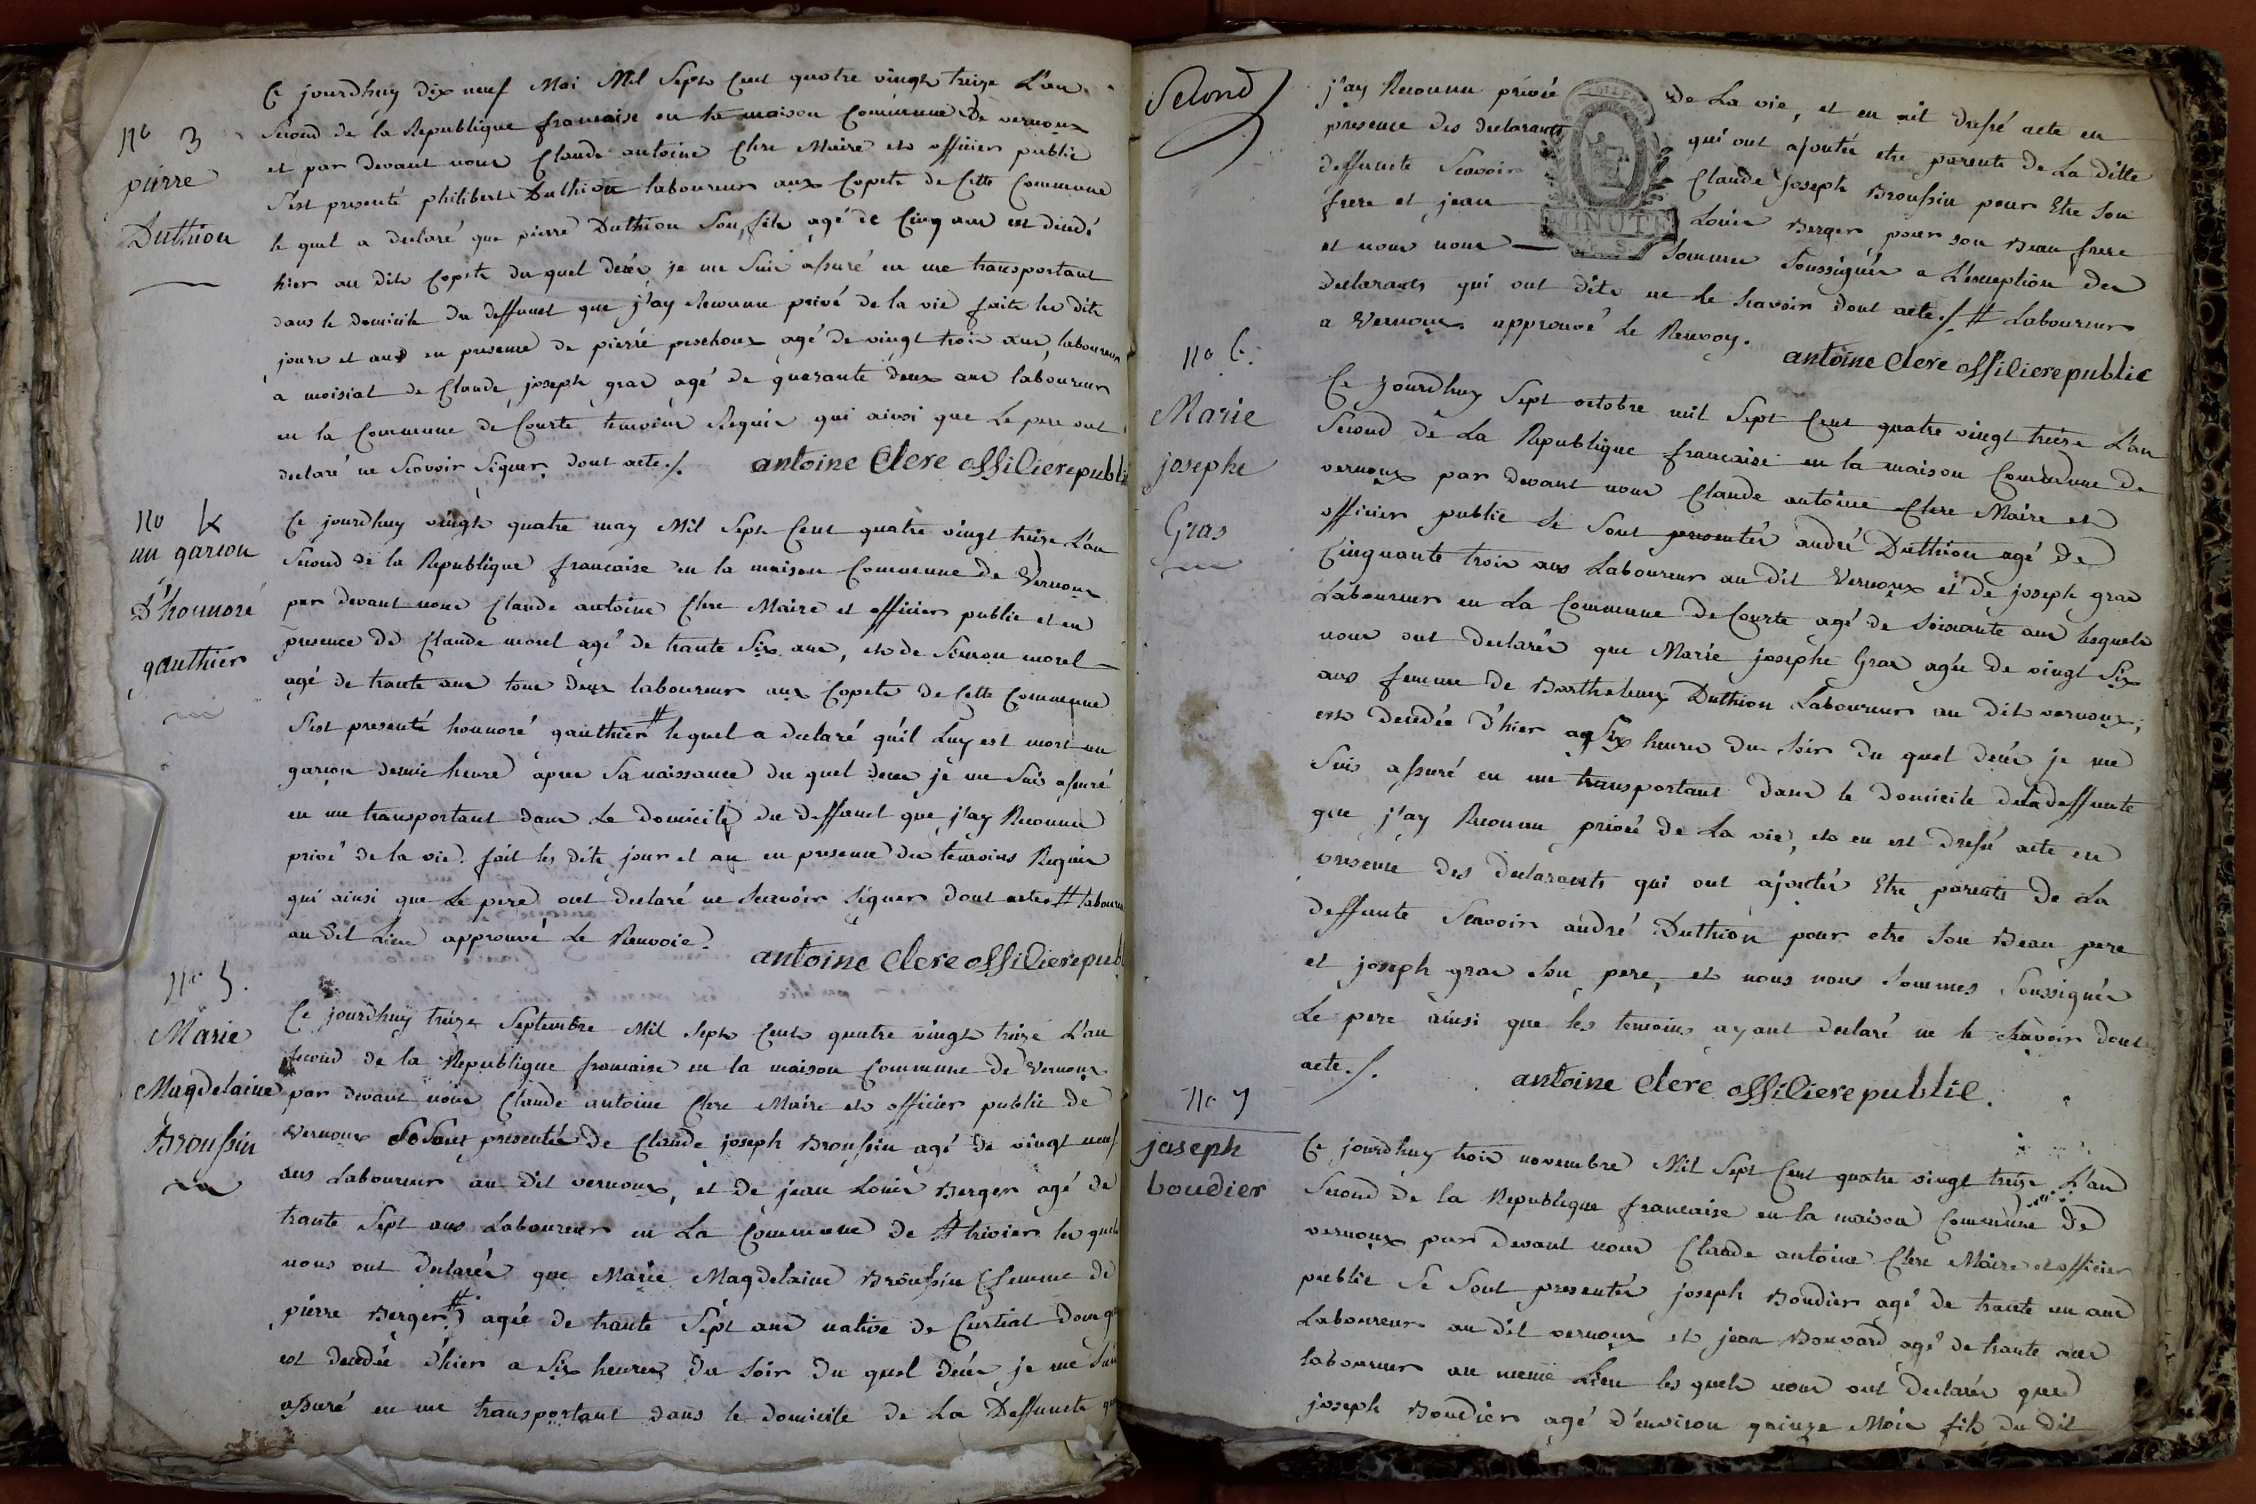 nº 3
pierre
Duthion
Ce jourdhuy dix neuf Mai Mil Sept Cent quatre vingt treize L'an
Second de la Republique francaise en la maison Commune De vernoux
et par devant nous Claude antoine Clere Maire et officier public
S'est presenté philibert Duthion laboureur aux Copets de Cette Commune
le quel a declaré que pierre Duthion Son fils agé de Cinq ans est décédé
hier au dit Copets du quel deces je me Suis assuré en me transportant
dans le domicile du deffunct que j'ay Reconnu privé de la vie fait les dits
jours et ans en presence de pierre peschoux agé de vingt trois ans laboureur
a moisiat de Claude joseph gras agé de quarante deux ans laboureur
en la Commune de Courte temoins Requis qui ainsi que Le pere ont
declaré ne Scavoir Signer dont acte ./.
antoine Clere offilierepubli
no 4
un garcon
D'honnoré
gauthier
Ce jourdhuy vingt quatre may Mil Sept Cent quatre vingt treize L'an
Second de la Republique francaise en la maison Commune de Vernoux
par devant nous Claude antoine Clere Maire et officier public et en
presence de Claude morel agé de trante Six ans, et de Simon morel
agé de trante ans tous deux laboureur aux Copets de Cette Commune
S'est presenté honnoré gauthier # le quel a declaré qu'il Luy est mort un
garcon demie heure apres Sa naissance du quel deces je me Suis assuré
en me transportant dans Le domicile du deffunct que j'ay Reconnu
privé de la vie. fait les dits jour et an en presence des temoins Requis
qui ainsi que Le pere ont declaré ne Scavoir Signer dont acte # laboureu
au dit Lieu approuvé Le Renvoie.
antoine Clere offilierepub
nº 5.
Marie
Magdelaine
Broussin
Ce jourdhuy treize Septembre Mil Sept Cent quatre vingt treize L'an
second de la Republique francaise en la maison Commune de Vernoux
par devant nous Claude antoine Clere Maire et officier public de
Vernoux Se Sont presentés de Claude joseph Broussin agé de vingt neuf
ans Laboureur au dit vernoux, et de jean Louis Berger agé de
trante Sept ans Laboureur en La Commune de St trivier les quels
nous ont declarés que Marie Magdelaine Broussin (femme de
pierre Berger #) agée de trante Sept ans native de Curtiat
est decedée d'hier a Six heures du Soir du quel deces je me Sui
assuré en me transportant dans le domicile de La Deffuncte que
Second
j'ay Reconnu privée de La vie, et en ait dressé acte en
presence des declarants qui ont ajoutés etre parents de La ditte
deffuncte Scavoir Claude Joseph Broussin pour Etre Son
frere et jean Louis Berger pour son Beau frere
et nous nous Sommes Soussignés a L'exception des
declarants qui ont dits ne le Scavoir dont acte ./. # Laboureur
a Vernoux approuvé Le Renvoy.
MINUTE
antoine Clere offilierepublic
nº 6.
Marie
josephe
Gras
Ce jourdhuy Sept octobre mil Sept Cent quatre vingt treize L'an
Second de La Republique francaise en la maison Commune De
vernoux par devant nous Claude antoine Clere Maire et
officier public Se Sont presentés andré Duthion agé De
Cinquante trois ans Laboureur au dit Vernoux et de joseph gras
Laboureur en La Commune De Courte agé de Soixante ans lesquels
nous ont declarés que Marie josephe Gras agée de vingt Six
ans femme de Barthelemy Duthion Laboureur au dit vernoux,
est decedée d'hier a Six heures du Soir du quel deces je me
Suis assuré en me transportant dans le domicile de la deffuncte
que j'ay Reconnu privée de La vie, et en est dressé acte en
presence des declarants qui ont ajoutés Etre parents de La
deffunte Scavoir andré Duthion pour etre Son Beau pere
et joseph gras Son pere, et nous nous Sommes Soussignés
Le pere ainsi que les temoins ayant declaré ne le Scavoir dont
acte ./.
antoine Clere offilierepublic.
nº 7
joseph
boudier
Ce jourdhuy trois novembre Mil Sept Cent quatre vingt treize L'an
Second de la Republique francaise en la maison Commune De
vernoux par devant nous Claude antoine Clere Maire et officier
public Se Sont presentés joseph Boudier agé de trante un ans
Laboureur au dit vernoux et jean Bouvard agé de trante ans
laboureur au meme Lieu les quels nous ont declarés que
joseph Boudier agé d'environ quinze Mois fils du dit